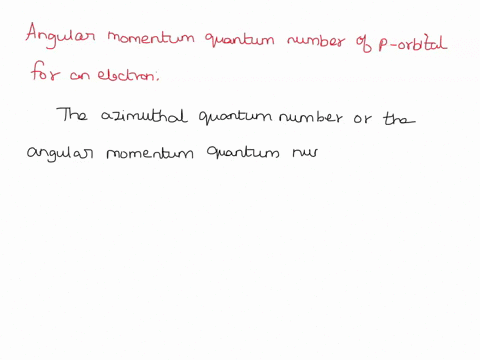 Angular momentum quantum number of p-orbital
for an electron:
The azimuthal quantum number or the
angular momentum quantum